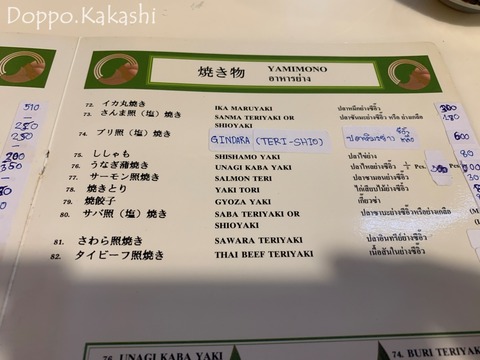 Doppo.Kakashi
焼き物 YAMIMONO
อาหารย่าง
510
72. イカ丸焼き IKA MARUYAKI ปลาหมึกย่างซีอิ๊ว 300
73. さんま照（塩）焼き SANMA TERIYAKI OR SHIOYAKI ปลาซันมะย่างซีอิ๊ว หรือ ย่างเกลือ 180
74. ブリ照（塩）焼き GINDARA (TERI-SHIO) 600
75. ししゃも SHISHAMO YAKI ปลาไข่ย่าง 80
76. うなぎ蒲焼き UNAGI KABA YAKI ปลาไหลย่างซีอิ๊ว ½ Pcs. Pcs.
350
77. サーモン照焼き SALMON TERI ปลาซามอนย่างซีอิ๊ว
78. 焼きとり YAKI TORI ไก่เสียบไม้ย่าง
79. 焼餃子 GYOZA YAKI เกี๊ยวซ่า
80. サバ照（塩）焼き SABA TERIYAKI OR SHIOYAKI ปลาซาบะย่างซีอิ๊ว หรือย่างเกลือ
81. さわら照焼き SAWARA TERIYAKI ปลาอินทรีย์ย่างซีอิ๊ว
82. タイビーフ照焼き THAI BEEF TERIYAKI เนื้อสันในย่างซีอิ๊ว
76. UNAGI KABA YAKI
74. BURI TERIYAK